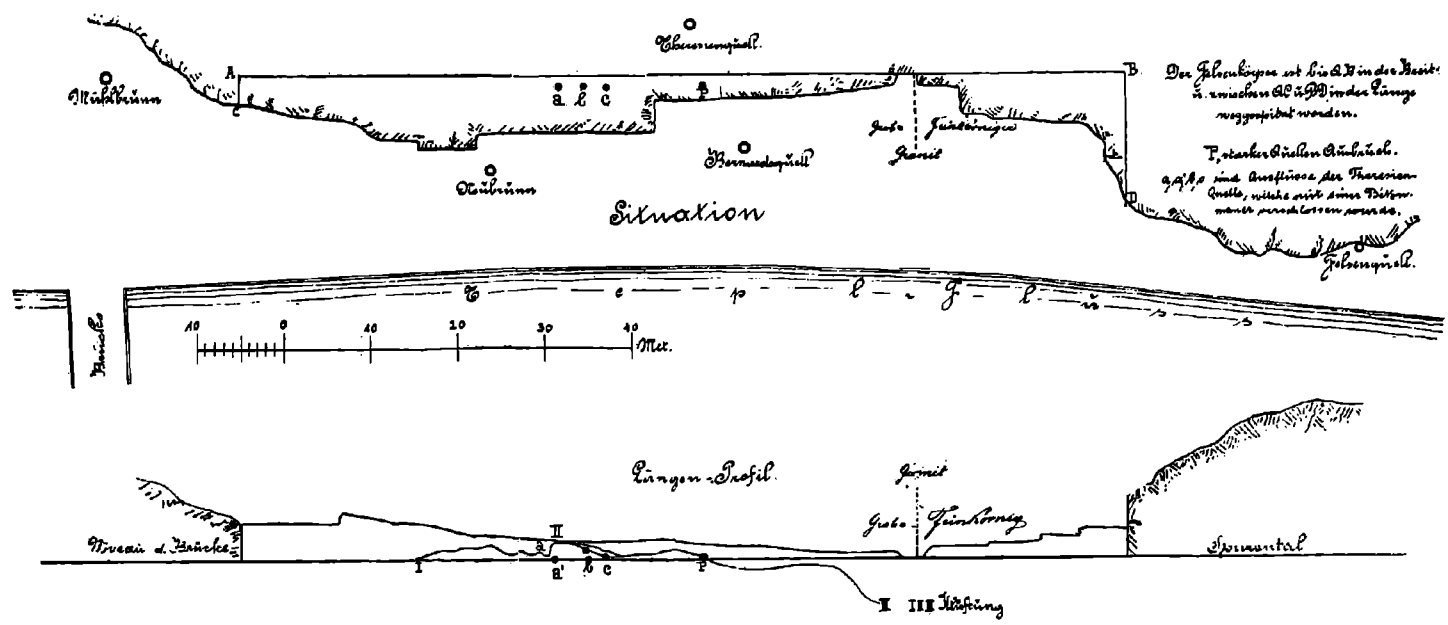 Theresienquell.
A
B
Mühlbrunn
a b c
P
C
Grob- Feinkörniger
Granit
Bernardsquell
Neubrunn
Situation
Der Felsenkörper ist bis AB in der Breite
u. zwischen AC u. BD in der Länge
weggespitzt worden.
P, starker Quellen Ausbruch.
a, b, c sind Ausflüsse der Theresien-
Quelle, welche mit einer Béton-
mauer verschlossen wurde.
D
Felsenquell.
Tepl-Fluss
Brücke
10 0 10 20 30 40
Met.
Längen-Profil.
Granit
Grob- Feinkörnig
II
a
Niveau d. Brücke
horizontal
I a' b c P
III Klüftung